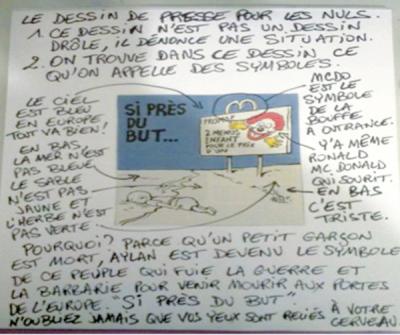 LE DESSIN DE PRESSE POUR LES NULS.
1. CE DESSIN N'EST PAS UN DESSIN
DRÔLE, IL DÉNONCE UNE SITUATION.
2. ON TROUVE DANS CE DESSIN CE
QU'ON APPELLE DES SYMBOLES.
LE CIEL
EST BLEU
EN EUROPE
TOUT VA BIEN!
EN BAS
LA MER N'EST
PAS BLEUE,
LE SABLE
N'EST PAS
JAUNE ET
L'HERBE N'EST
PAS VERTE.
SI PRÈS
DU
BUT...
PROMO!
2 MENUS
ENFANT
POUR LE PRIX
D'UN
MCDO
EST LE
SYMBOLE
DE LA
BOUFFE
A OUTRANCE.
Y'A MÊME
RONALD
MC DONALD
QUI SOURIT.
EN BAS
C'EST
TRISTE.
POURQUOI? PARCE QU'UN PETIT GARÇON
EST MORT, AYLAN EST DEVENU LE SYMBOLE
DE CE PEUPLE QUI FUIE LA GUERRE ET
LA BARBARIE POUR VENIR MOURIR AUX PORTES
DE L'EUROPE. "SI PRÈS DU BUT".
N'OUBLIEZ JAMAIS QUE VOS YEUX SONT RELIÉS À VOTRE
CERVEAU